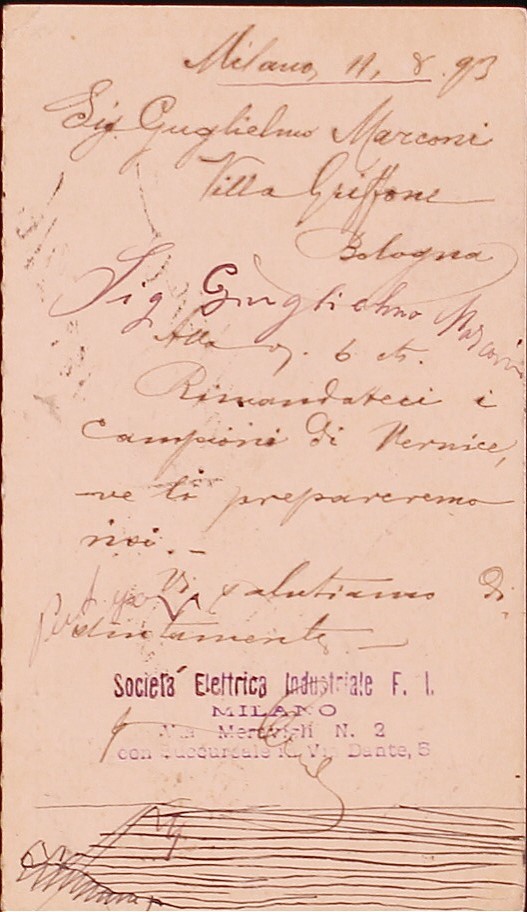 Milano, 11, 8. 93
Sig. Guglielmo Marconi
Villa Griffone
Bologna
Sig Guglielmo Marconi
Alla 6
Rimandateci i
Campioni di Vernice,
ve li prepareremo
noi. _
Vi salutiamo di
stintamente _
Società Elettrica Industriale F. I.
MILANO
Via Meravigli N. 2
con Succursale Via Dante, 5